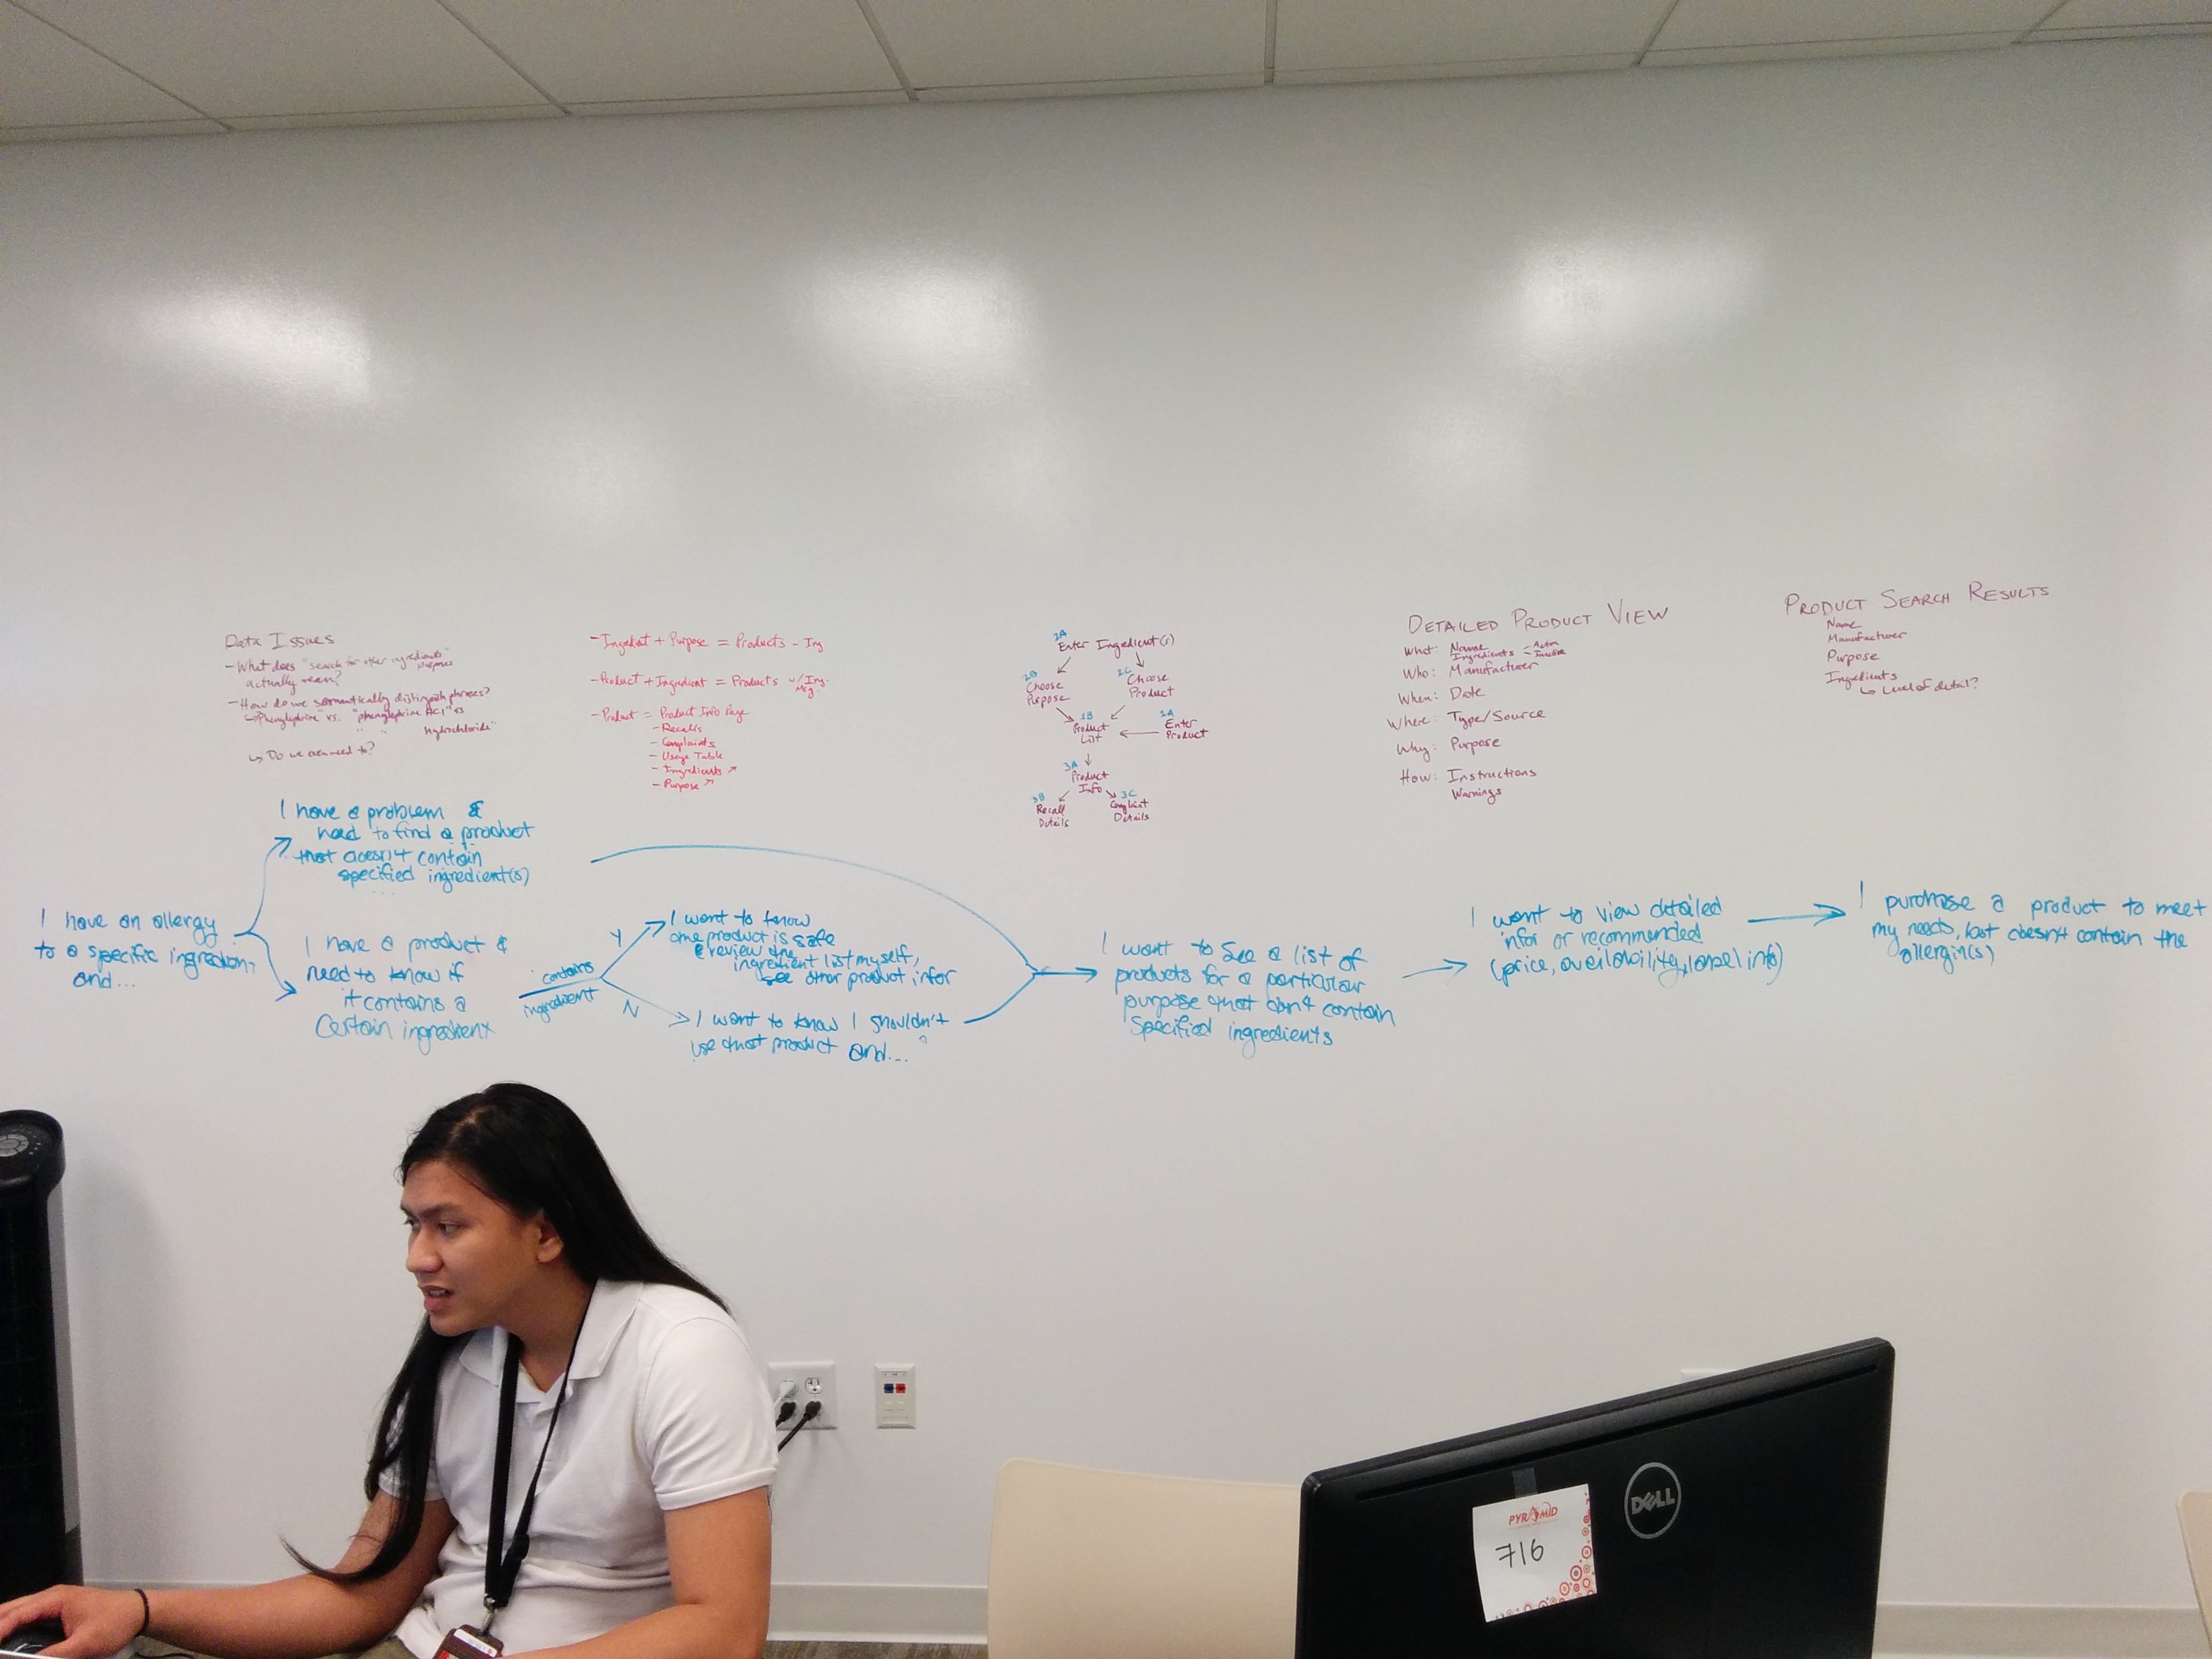 Data Issues
- What does "search for other ingredients"
purposes
actually mean?
- How do we semantically distinguish phrases?
↳ "Phenylephrine" vs. "phenylephrine HCl" vs
" " hydrochloride"
↳ Do we even need to?
- Ingredient + Purpose = Products - Ing
- Product + Ingredient = Products w/ Ing.
- Product = Product Info Page
- Recalls
- Complaints
- Usage Table
- Ingredients ↗
- Purpose ↗
2A
Enter Ingredient(s)
2B
Choose
Purpose
2C
Choose
Product
1B
Product
List
1A
Enter
Product
3A
Product
Info
3B
Recall
Details
3C
Complaint
Details
DETAILED PRODUCT VIEW
What: Name
Ingredients - Active
- Inactive
Who: Manufacturer
When: Date
Where: Type/Source
Why: Purpose
How: Instructions
Warnings
PRODUCT SEARCH RESULTS
Name
Manufacturer
Purpose
Ingredients
↳ Level of detail?
I have an allergy
to a specific ingredient
and...
I have a problem &
need to find a product
that doesn't contain
specified ingredient(s)
...
I have a product &
need to know if
it contains a
certain ingredient
contains
ingredient
Y
I want to know
product is safe
& review the
ingredient list myself,
see other product infor
N
I want to know I shouldn't
use that product and...
I want to see a list of
products for a particular
purpose that don't contain
specified ingredients
I want to view detailed
infor or recommended
(price, availability, label info)
I purchase a product to meet
my needs, but doesn't contain the
allergin(s)
PYRAMID
716
DELL